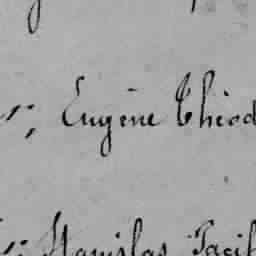 Eugène Théod
Stanislas Pacif